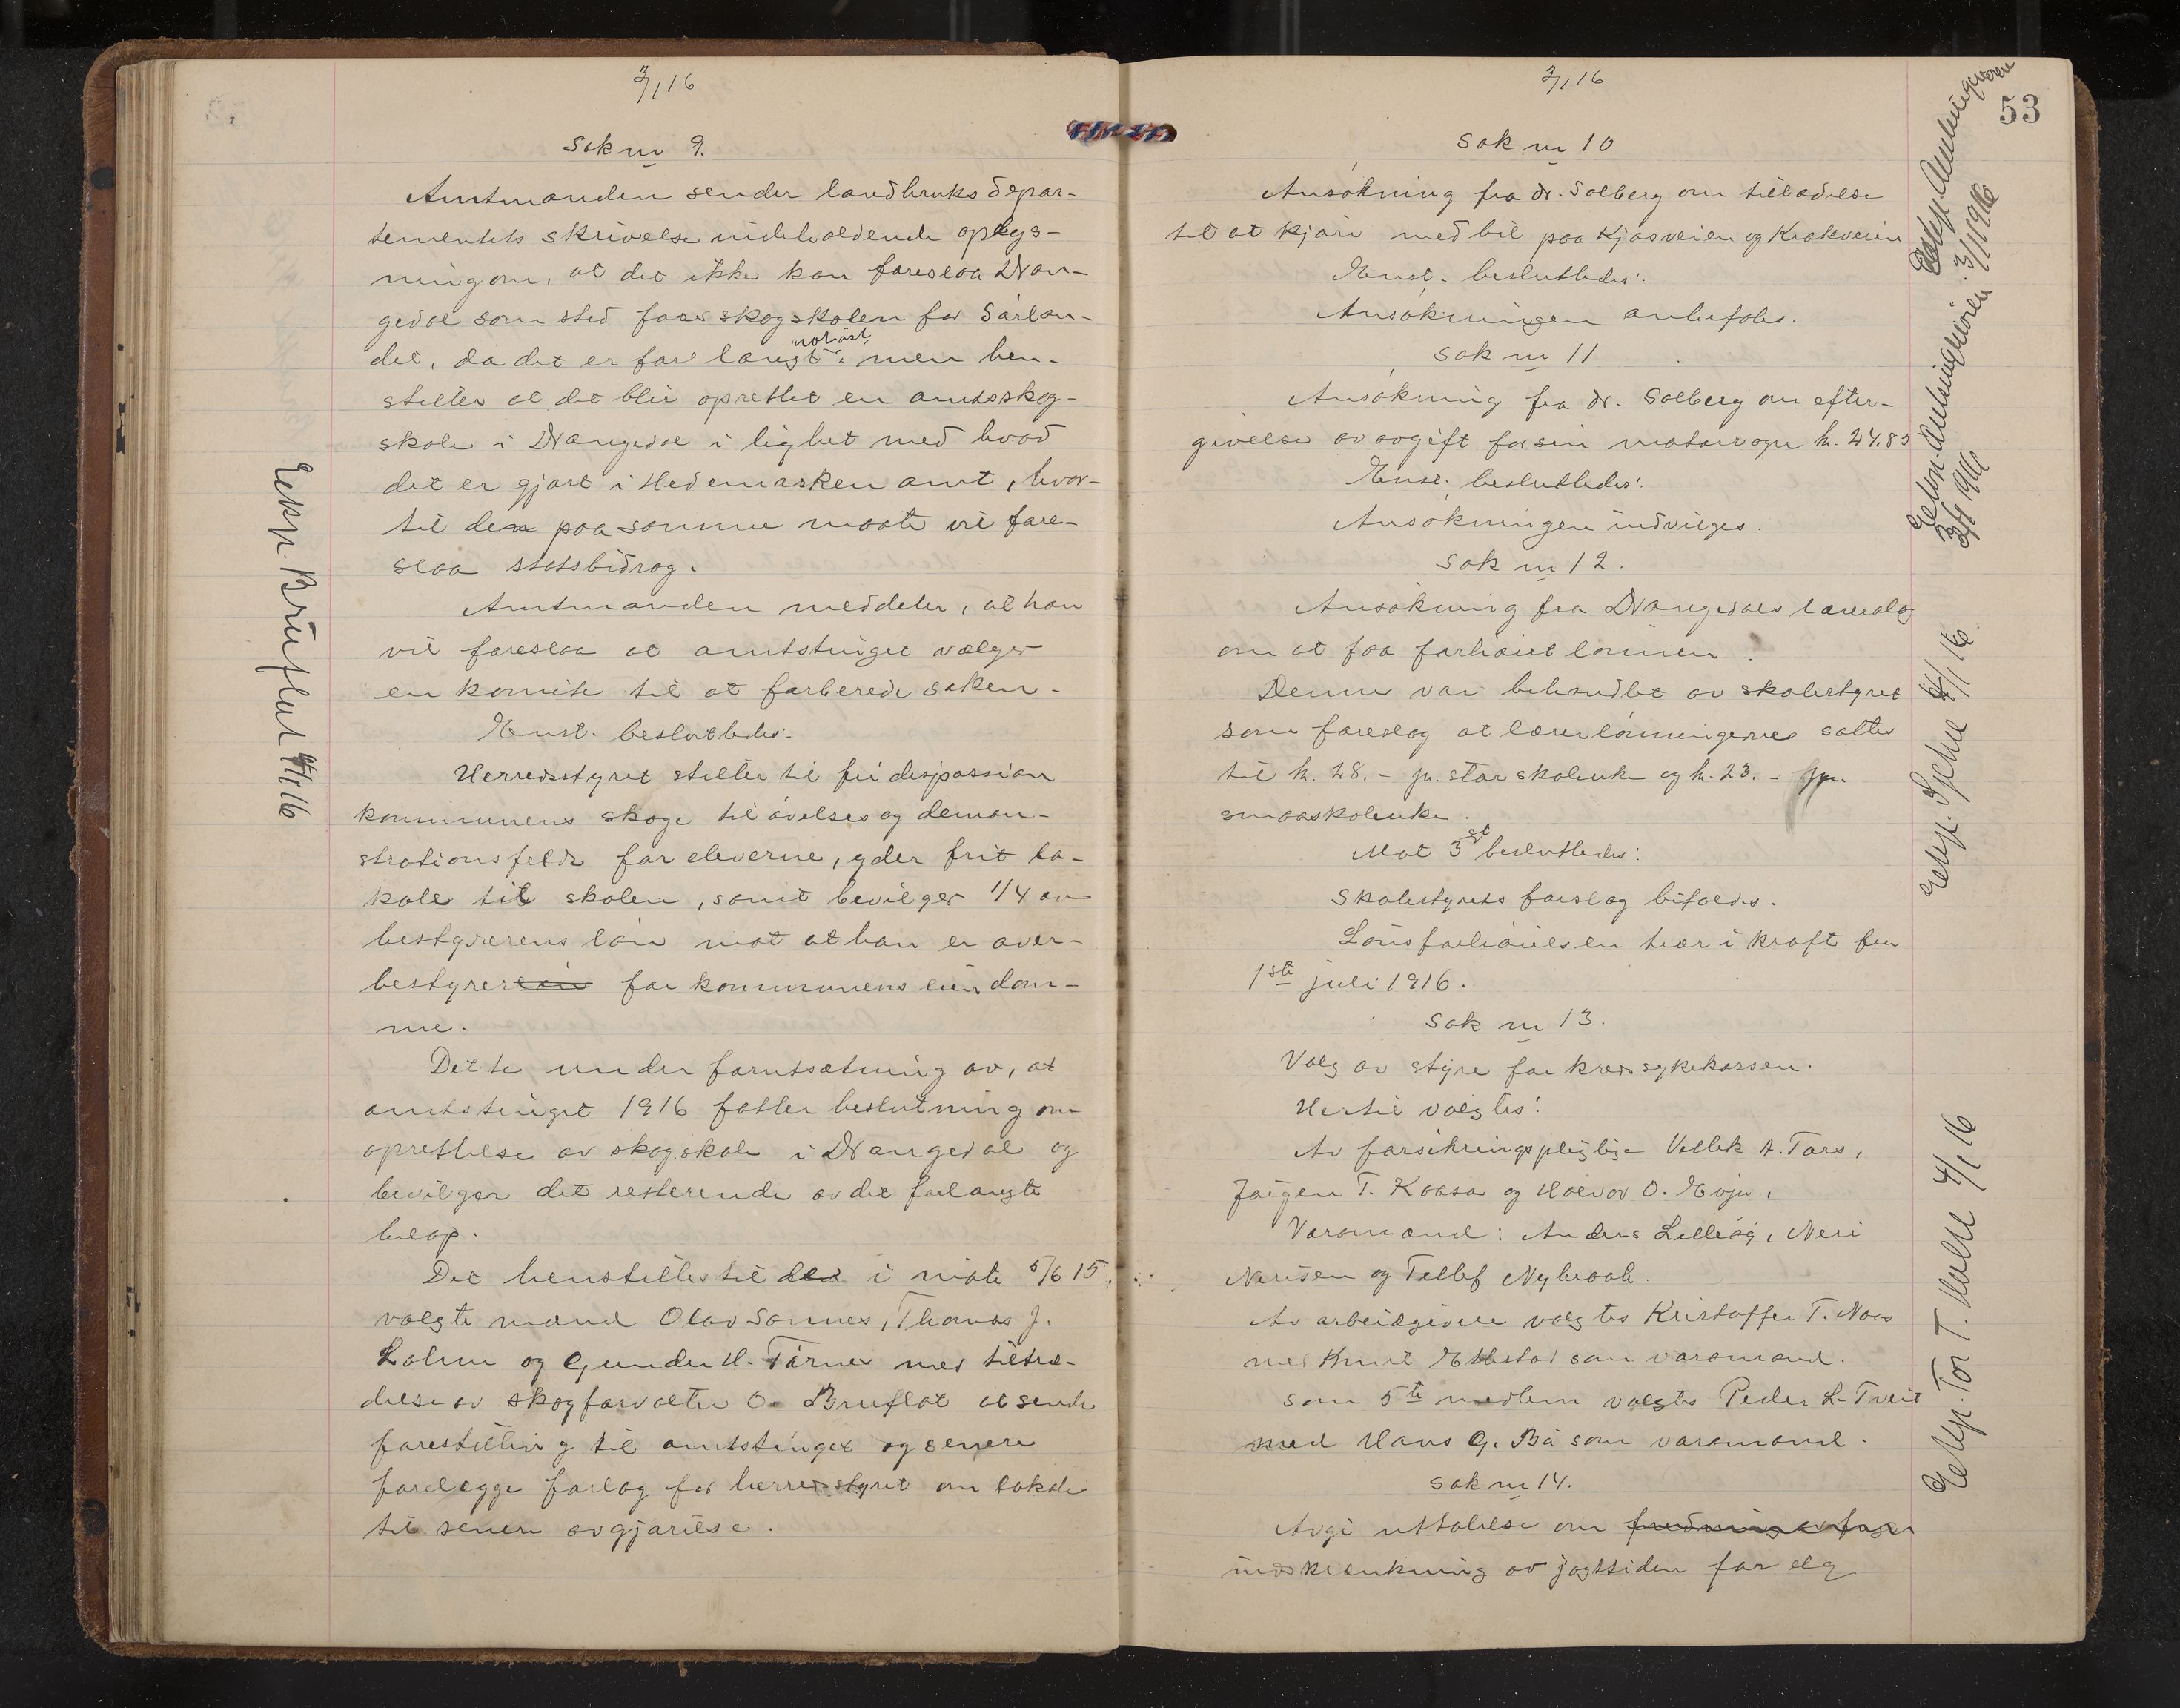 3/1 16
Sak nr 9.
Amtmanden sender landbruksdepar-
tementets skrivelse indeholdende oplys-
ning om, at det ikke kan foreslaa Dran-
gedal som sted for skogskolen for Sørlan-
det, da det er for langt nordøst, men hen-
stiller at det blir oprettet en amtsskog-
skole i Drangedal i lighet med hvad
det er gjort i Hedemarken amt, hvor-
til den paa samme maate vil fore-
slaa statsbidrag.
Amtmanden meddeler, at han
vil foreslaa at amtstinget vælger
en komite til at forberede saken.
Enst. beslutledes:
Herredsstyret stiller til fri disposision
kommunens skoge til øvelses og demon-
strationsfeldt for eleverne, yder frit lo-
kale til skolen, samt bevilger 1/4 av
bestyrerens løn mot at han er over-
bestyrer for kommunens eiendom-
me.
Dette under forutsætning av, at
amtstinget 1916 fatter beslutning om
oprettelse av skogskole i Drangedal og
bevilger det resterende av det forlangte
beløp.
Det henstilles til de i møte 5/6 15
valgte mænd Olav Sannes, Thomas J.
Lolum og Gunder H. Tørnes med tiltræ-
delse av skogforvalter O. Bruflot at sende
forestilling til amtstinget og senere
forelægge forslag for herredsstyret om lokale
til senere avgjørelse.
Eksp. Bruflot 4/1 16
3/1 16
53
Sak nr 10
Ansøkning fra dr. Solberg om tilladelse
til at kjøre med bil paa Kjosveien og Krokveien
Enst. beslutledes:
Ansøkningen anbefales.
Sak nr 11
Ansøkning fra dr. Solberg om efter-
givelse av avgift for sin motorvogn kr. 24.83
Enst. beslutledes:
Ansøkningen indvilges.
Sak nr 12.
Ansøkning fra Drangedals lærerlag
om at faa forhøiet lønnen.
Denne var behandlet av skolestyret
som foreslog at lærerlønningerne sattes
til kr. 28.- pr. storskoleuke og kr. 23.- pr.
smaaskoleuke.
Mot 3 st beslutledes:
Skolestyrets forslag bifaldes.
Lønsforhøielsen trær i kraft fra
1ste juli 1916.
Sak nr 13.
Valg av styre for kredssykekassen.
Hertil valgtes:
Av forsikringspligtige Vetlek A. Tors,
Jørgen T. Kaasa og Halvor O. Evju,
Varamænd: Anders Lilleøig, Neri
Nerisen og Tellef Nybraat.
Av arbeidsgivere valgtes Kristoffer T. Naas
med Knut Ettestad som varamand.
Som 5te medlem valgtes Peder L. Tveit
med Hans G. Bø som varamand.
Sak nr 14.
Avgi uttalelse om
indskrænkning av jagttiden for elg
Eksp. Amtsingeniøren 3/1 1916
Eksp. Amtsingeniøren 3/1 1916
Eksp. 4/1 16
Eksp. Tor T. 4/1 16